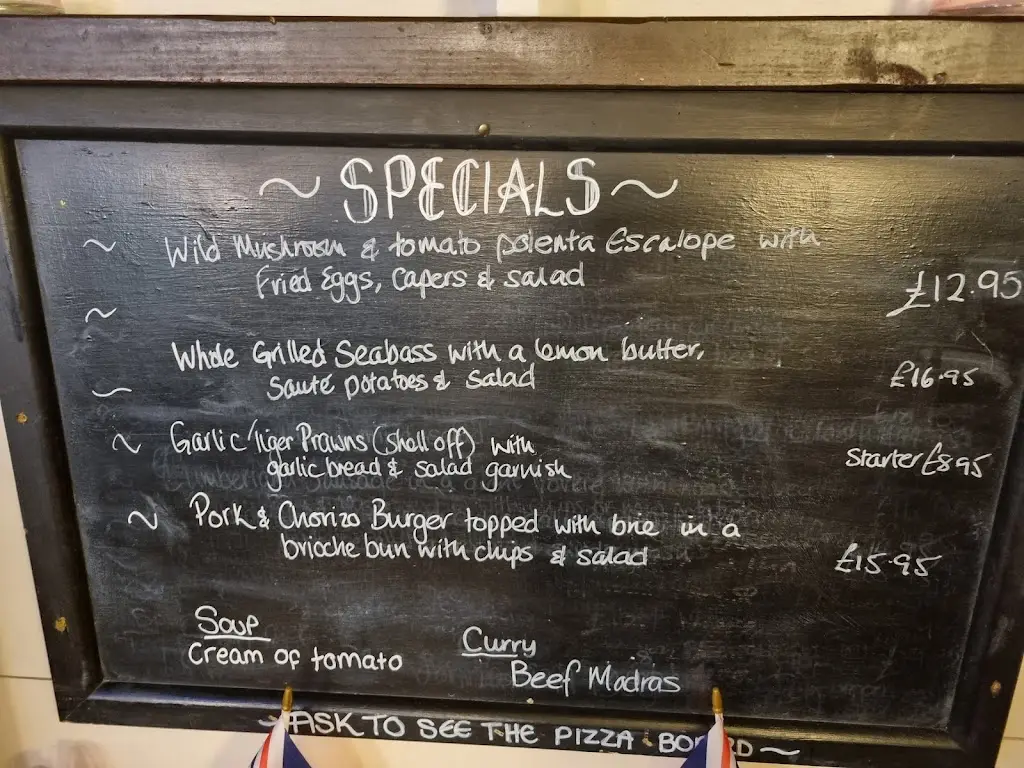 ~ SPECIALS ~
~ Wild Mushroom & tomato polenta Escalope with
Fried Eggs, Capers & salad
£12.95
~
Whole Grilled Seabass with a lemon butter,
Sauté potatoes & Salad
£16.95
~
~ Garlic Tiger Prawns (shell off) with
garlic bread & salad garnish
Starter £8.95
~ Pork & Chorizo Burger topped with brie in a
brioche bun with chips & salad
£15.95
Soup
Cream of tomato
Curry
Beef Madras
~ASK TO SEE THE PIZZA BOARD~